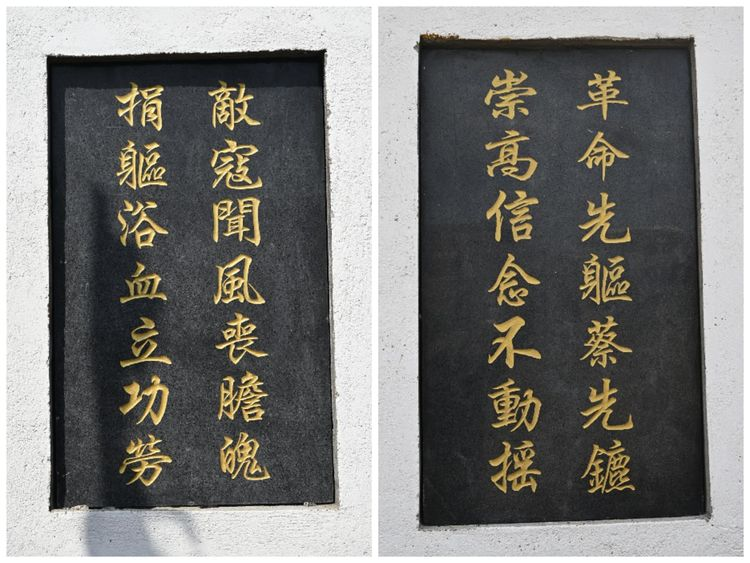 革命先軀蔡先鑣
崇高信念不動摇
敵寇聞風喪膽魄
捐軀浴血立功勞